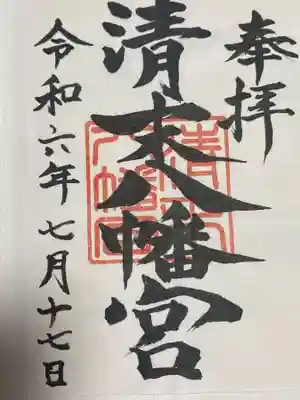 奉拝
清末八幡宮
令和六年七月十七日